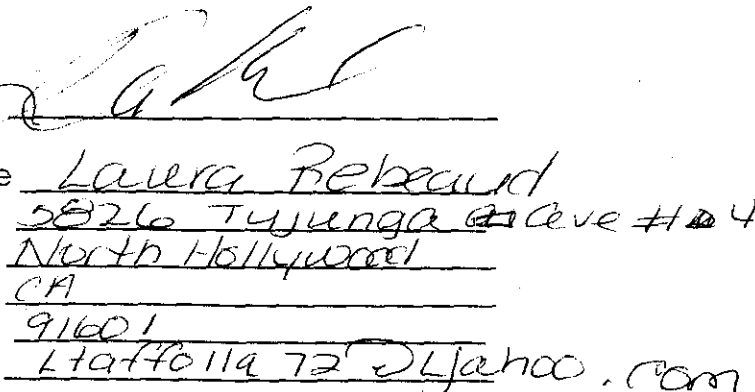 e Laura Rebeaud
5826 Tujunga Ave # 4
North Hollywood
CA
91601
Ltaffolla72@yahoo.com